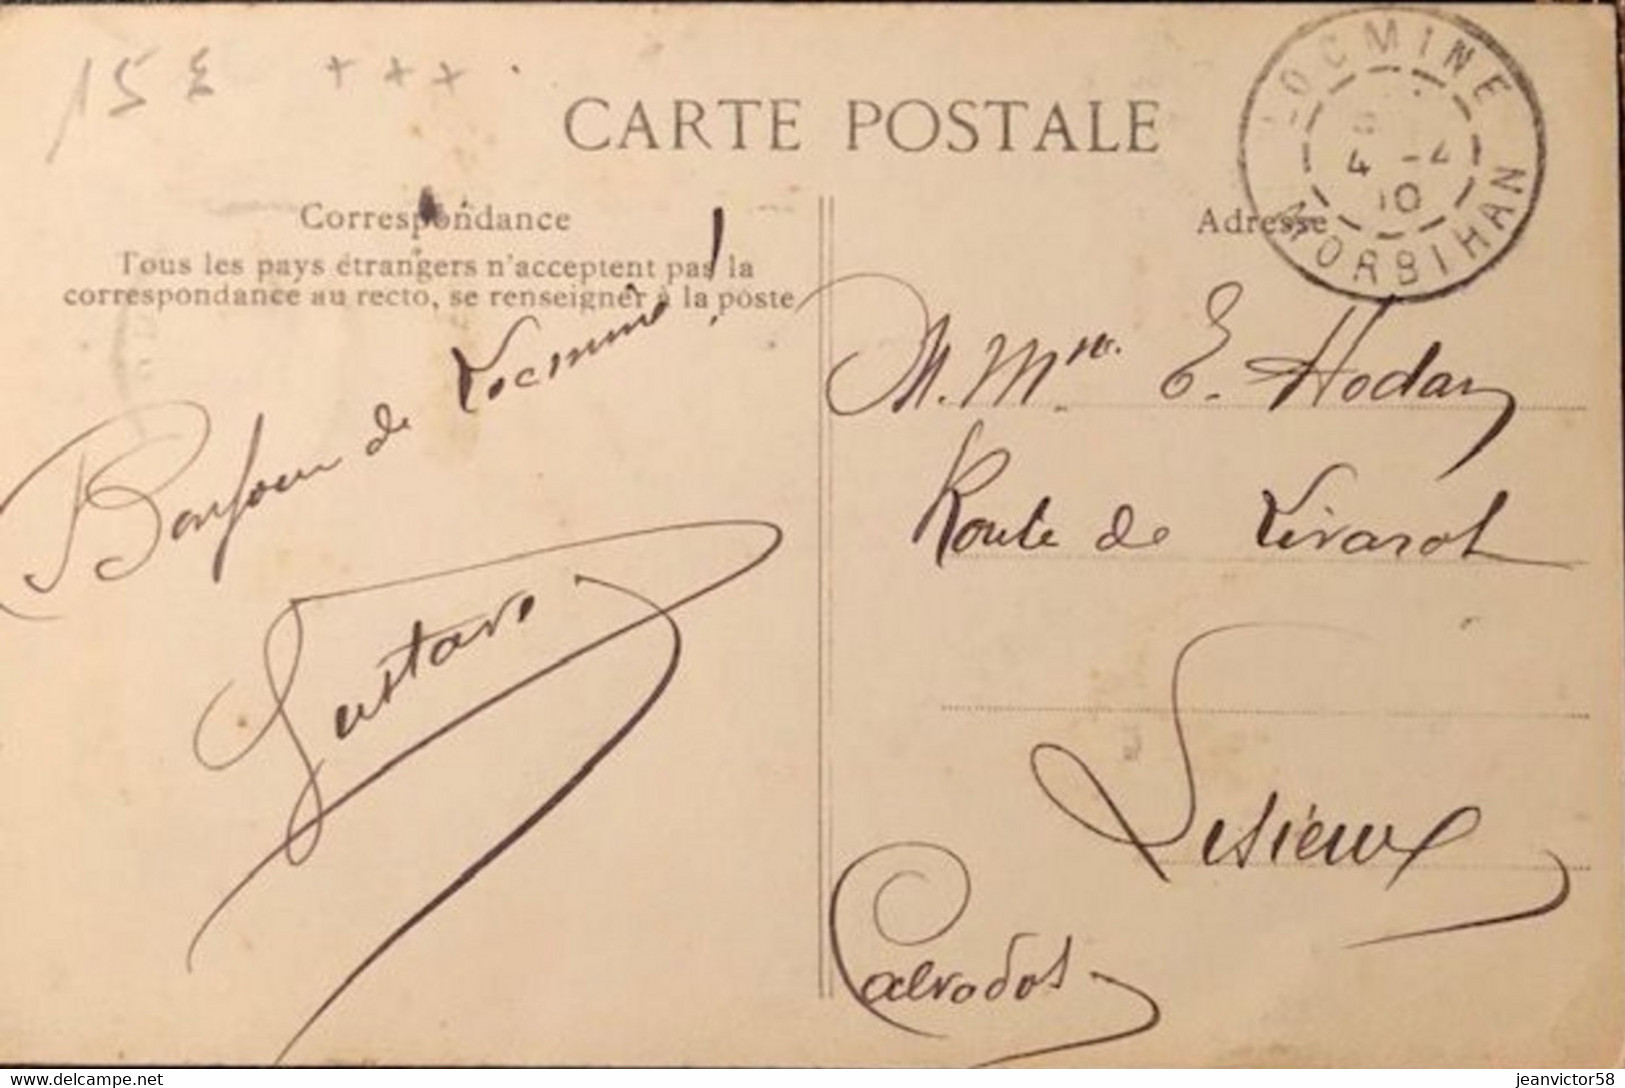 15 £ +++
CARTE POSTALE
LOCMINE
4 -4
10
MORBIHAN
Correspondance
Tous les pays étrangers n'acceptent pas la
correspondance au recto, se renseigner à la poste
Bonjour de Locminé !
Gustave
Adresse
M. Mme E. Hodan
Route de Livarot
Lisieux
Calvados
delcampe.net
jeanvictor58